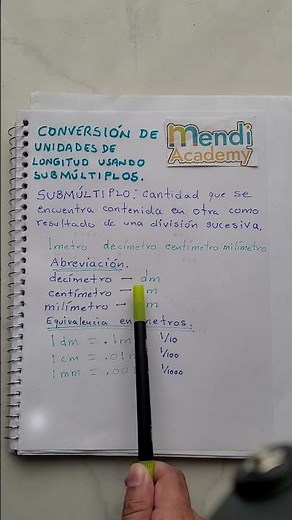 CONVERSIÓN DE
UNIDADES DE
LONGITUD USANDO
SUBMÚLTIPLOS.
mendi
Academy
SUBMÚLTIPLO: Cantidad que se
encuentra contenida en otra como
resultado de una división sucesiva.
1metro decímetro centímetro milímetro
Abreviación.
decímetro → dm
centímetro → m
milímetro → m
Equivalencia en metros.
1 dm = .1m 1/10
1 cm = .01m 1/100
1 mm = .00 1/1000